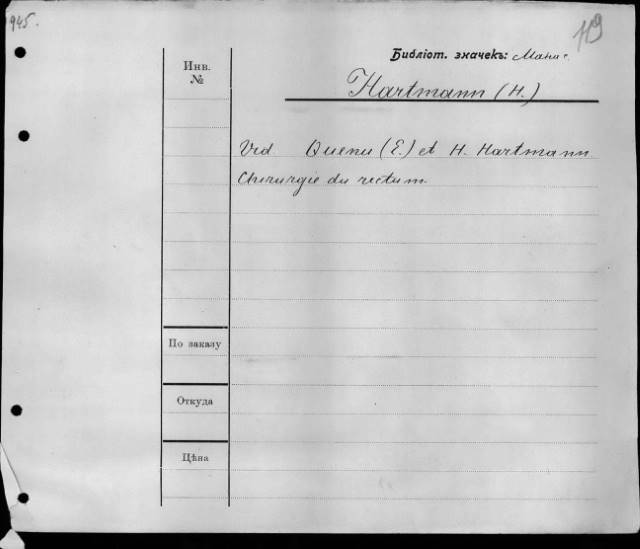 945.
119
Библіот. значекъ:
Инв.
№
Hartmann (H.)
Vid Quenu (E.) et H. Hartmann.
Chirurgie du rectum.
По заказу
Откуда
Цѣна